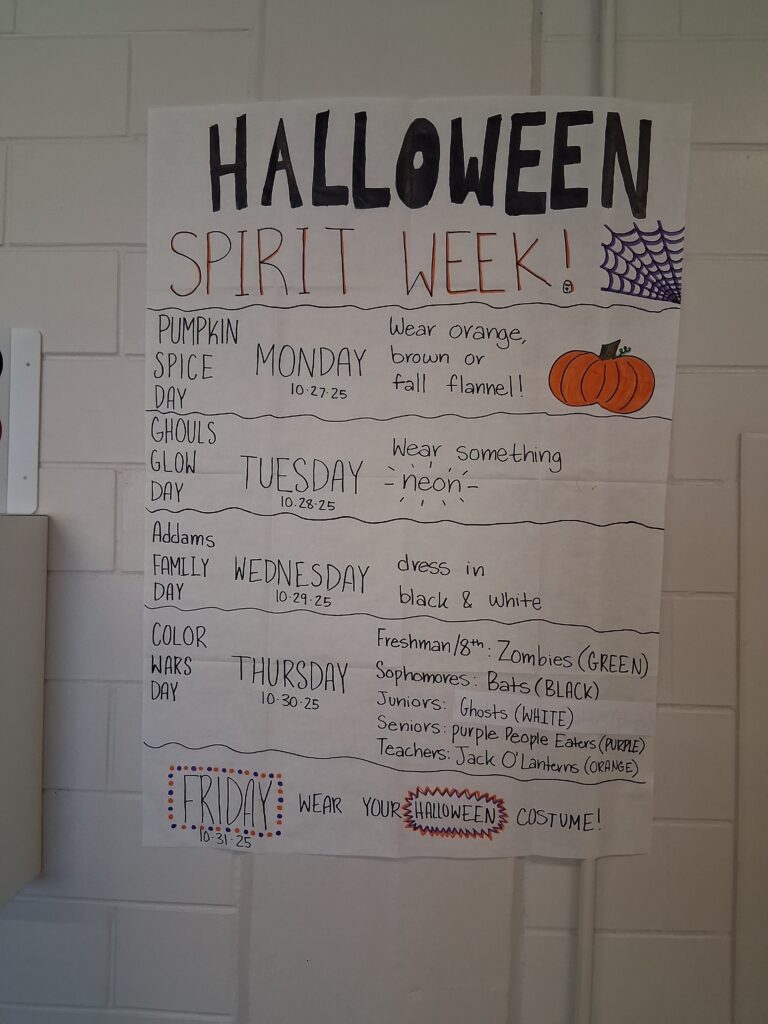 HALLOWEEN
SPIRIT WEEK!
PUMPKIN
SPICE
DAY
MONDAY
10.27.25
Wear orange,
brown or
fall flannel!
GHOULS
GLOW
DAY
TUESDAY
10.28.25
Wear something
neon
Addams
FAMILY
DAY
WEDNESDAY
10.29.25
dress in
black & white
COLOR
WARS
DAY
THURSDAY
10.30.25
Freshman/8th: Zombies (GREEN)
Sophomores: Bats (BLACK)
Juniors: Ghosts (WHITE)
Seniors: purple People Eaters (PURPLE)
Teachers: Jack O'Lanterns (ORANGE)
FRIDAY WEAR YOUR HALLOWEEN COSTUME!
10.31.25